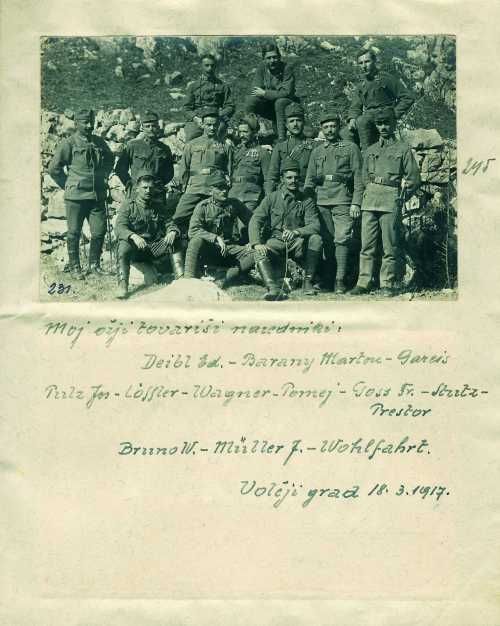 231.
245
Moj ožji tovariši naredniki:
Deibl Ed. - Barany Marton - Gareis
Pulz Jn - Löffler - Wagner - Pomej - Goss Fr. - Stutz -
Prestor
Bruno W. - Müller J. - Wohlfahrt.
Volčji grad 18. 3. 1917.